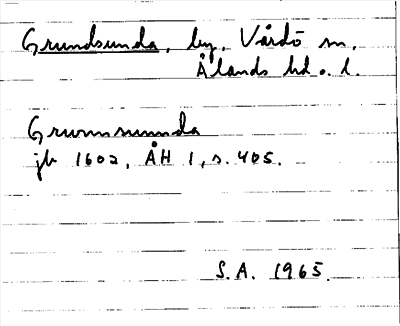 Grundsunda, by, Vårdö sn.
Ålands hd o. l.
Grwnnsunnda
jb 1602, ÅH 1, s. 405.
S.A. 1965.